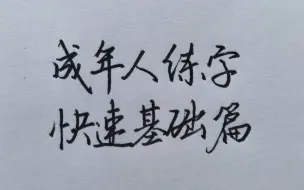 成年人练字
快速基础篇